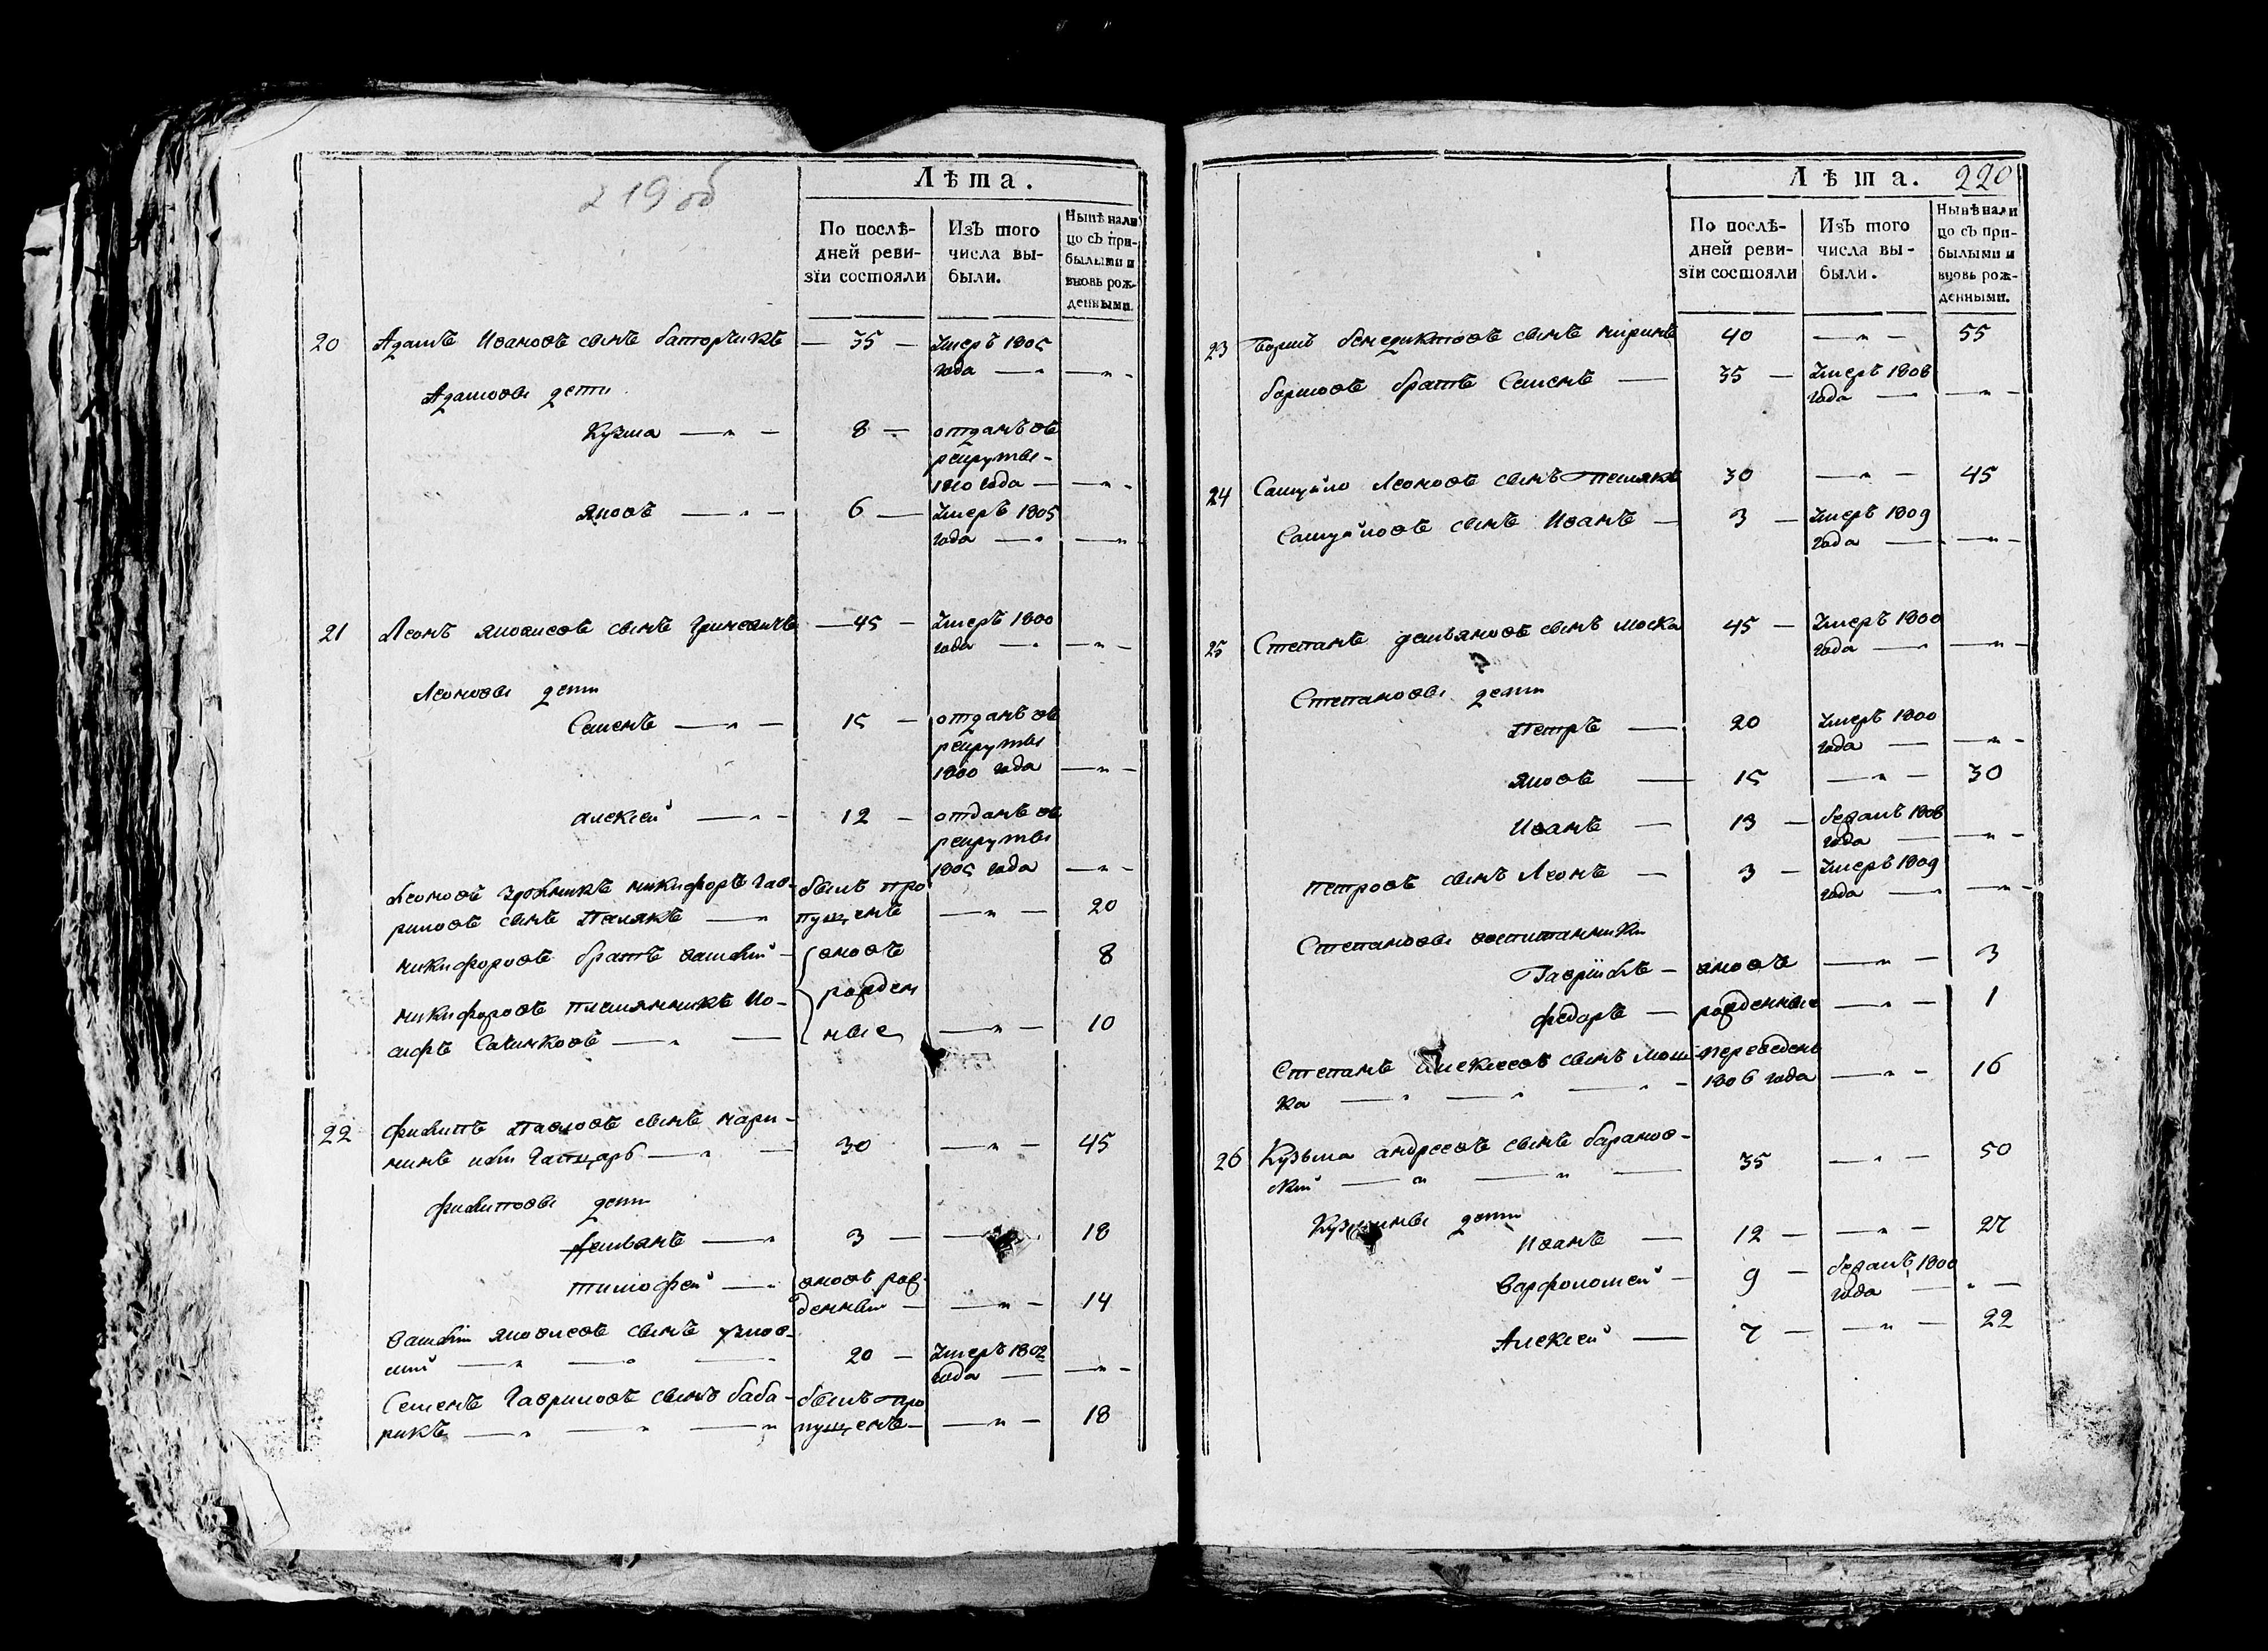 219 об
Лѣта.
По послѣ-
дней реви-
зіи состояли
Изъ того
числа вы-
были.
Нынѣ нали
цо съ при-
былыми и
вновь рож-
денными.
20 Адамъ Ивановъ сынъ — 35 — Умеръ 1805
года — „ —
Адамовы дети
Кузма — „ — 8 — отданъ въ
рекруты —
1810 года — „ —
Яковъ — „ — 6 — Умеръ 1805
года — „ —
21 Леонъ сынъ Гриневичъ — 45 — Умеръ 1800
года — „ —
Леоновы дети
Семенъ — „ — 15 — отданъ въ
рекруты
1800 года — „ —
Алексей — „ — 12 — отданъ въ
рекруты
1805 года — „ —
Леоновъ никифоръ гав- былъ про
риловъ сынъ — „ пущенъ — „ — 20
никифоровъ братъ василій — вновь 8
никифоровъ племянникъ Ио- рожден
сифъ — „ — ные — „ — 10
22 Филипъ Павловъ сынъ мари-
нинъ или — „ — 30 — „ — 45
Филиповы дети
Демьянъ — „ 3 — „ — 18
тимофей — „ вновь рож-
денный — — „ — 14
василій сынъ
— „ — „ — 20 — Умеръ 1802
года — „ —
Семенъ Гавриловъ сынъ баба- былъ про
рикъ — „ — „ — „ пущенъ — — „ — 18
220
Лѣта.
По послѣ-
дней реви-
зіи состояли
Изъ того
числа вы-
были.
Нынѣ нали
цо съ при-
былыми и
вновь рож-
денными.
23 бенедиктовъ сынъ маринъ 40 — „ — 55
братъ Семенъ — 35 — Умеръ 1808
года — „ —
24 Самуйло Леоновъ сынъ 30 — „ — 45
Самуйловъ сынъ Иванъ — 3 — Умеръ 1809
года — „ —
25 Степанъ демьяновъ сынъ моска 45 — Умеръ 1800
года — „ —
Степановы дети
Петръ — 20 Умеръ 1800
года — „ —
Яковъ — 15 — „ — 30
Иванъ — 13 — бежалъ 1808
года — „ —
петровъ сынъ Леонъ — 3 — Умеръ 1809
года — „ —
Степановы воспитанники
Гавріилъ — вновь — „ — 3
федоръ — рожденные — „ — 1
Степанъ Алексеевъ сынъ мос- переведенъ
ка — „ — „ — „ — 1806 года — „ — 16
26 Кузьма андреевъ сынъ баранов-
скій — „ — „ — 35 — „ — 50
Кузмины дети
Иванъ — 12 — — „ — 27
варфоломей — 9 — бежалъ 1800
года — „ —
Алексей — 7 — — „ — 22